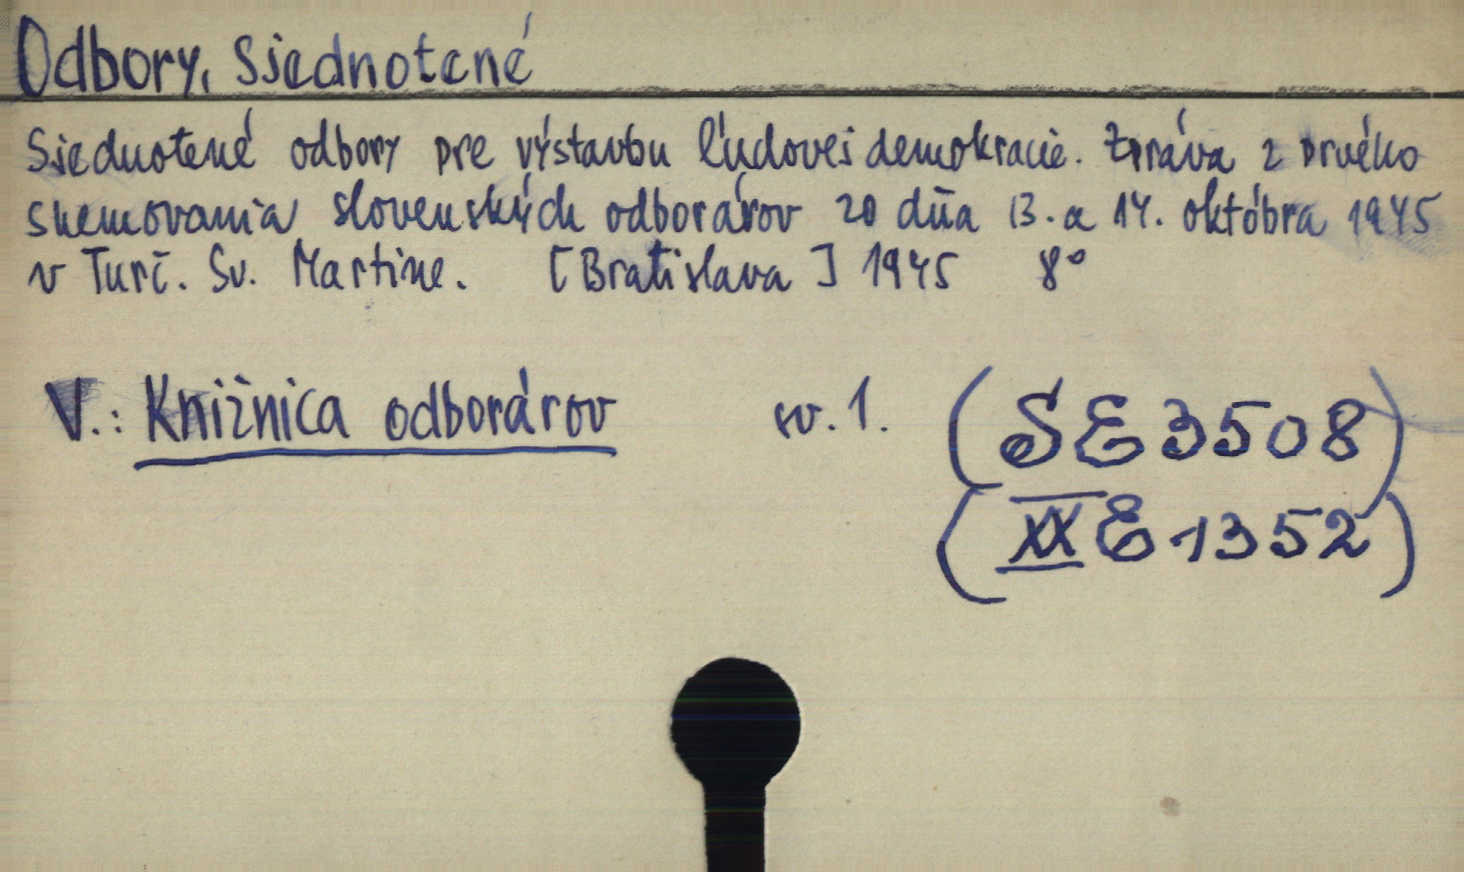 Odbory, Sjednotené
Sjednotené odbory pre výstavbu ľudovej demokracie. Zpráva z prvého
snemovania slovenských odborárov 20 dňa 13. a 14. októbra 1945
v Turč. Sv. Martine. [Bratislava] 1945 8°
V.: Knižnica odborárov sv. 1. (SE 3508)
(XX E 1352)